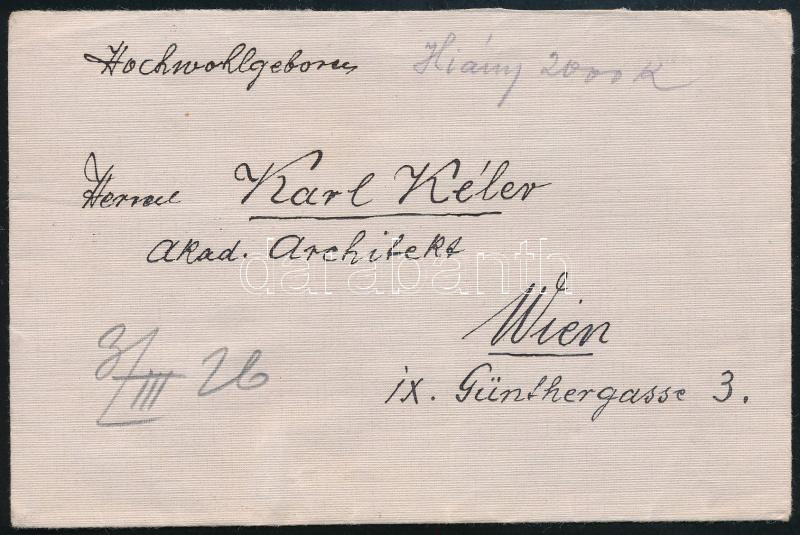 Hochwohlgeboren Hiány 2000 K
Herrn Karl Kéler
akad. Architekt
darabanth
Wien
3/III 26
IX. Günthergasse 3.